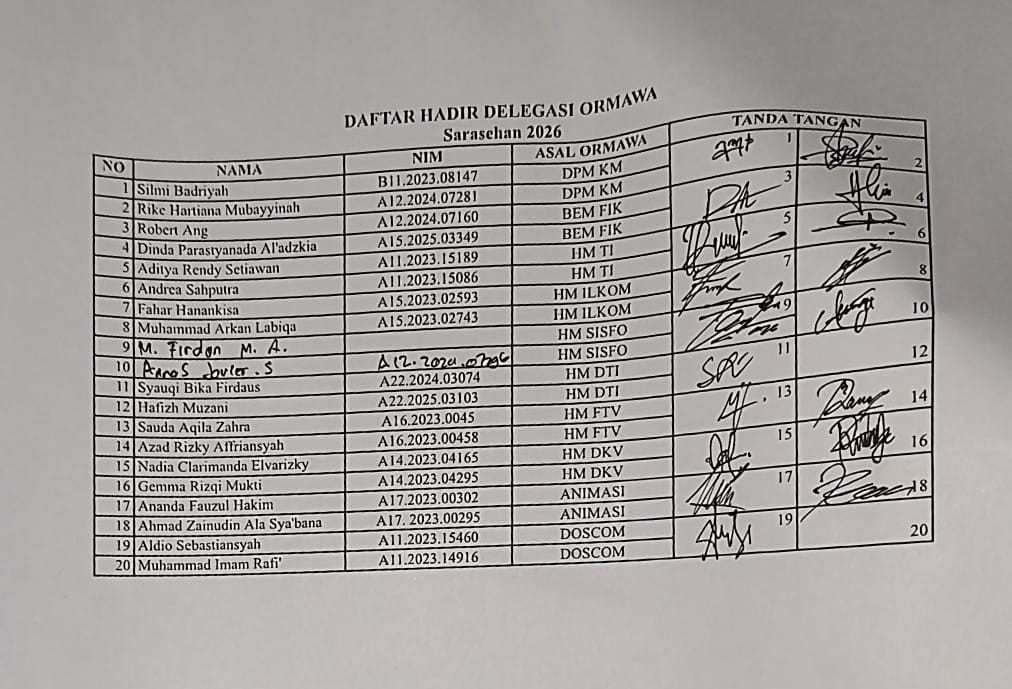 DAFTAR HADIR DELEGASI ORMAWA
Sarasehan 2026
NO NAMA NIM ASAL ORMAWA TANDA TANGAN
1 Silmi Badriyah B11.2023.08147 DPM KM 1
2 Rike Hartiana Mubayyinah A12.2024.07281 DPM KM 2
3 Robert Ang A12.2024.07160 BEM FIK 3
4 Dinda Parastyanada Al'adzkia A15.2025.03349 BEM FIK 4
5 Aditya Rendy Setiawan A11.2023.15189 HM TI 5
6 Andrea Sahputra A11.2023.15086 HM TI 6
7 Fahar Hanankisa A15.2023.02593 HM ILKOM 7
8 Muhammad Arkan Labiqa A15.2023.02743 HM ILKOM 8
9 M. Firdan M. A. HM SISFO 9
10 HM SISFO 10
11 Syauqi Bika Firdaus A22.2024.03074 HM DTI 11
12 Hafizh Muzani A22.2025.03103 HM DTI 12
13 Sauda Aqila Zahra A16.2023.0045 HM FTV 13
14 Azad Rizky Affriansyah A16.2023.00458 HM FTV 14
15 Nadia Clarimanda Elvarizky A14.2023.04165 HM DKV 15
16 Gemma Rizqi Mukti A14.2023.04295 HM DKV 16
17 Ananda Fauzul Hakim A17.2023.00302 ANIMASI 17
18 Ahmad Zainudin Ala Sya'bana A17. 2023.00295 ANIMASI 18
19 Aldio Sebastiansyah A11.2023.15460 DOSCOM 19
20 Muhammad Imam Rafi' A11.2023.14916 DOSCOM 20